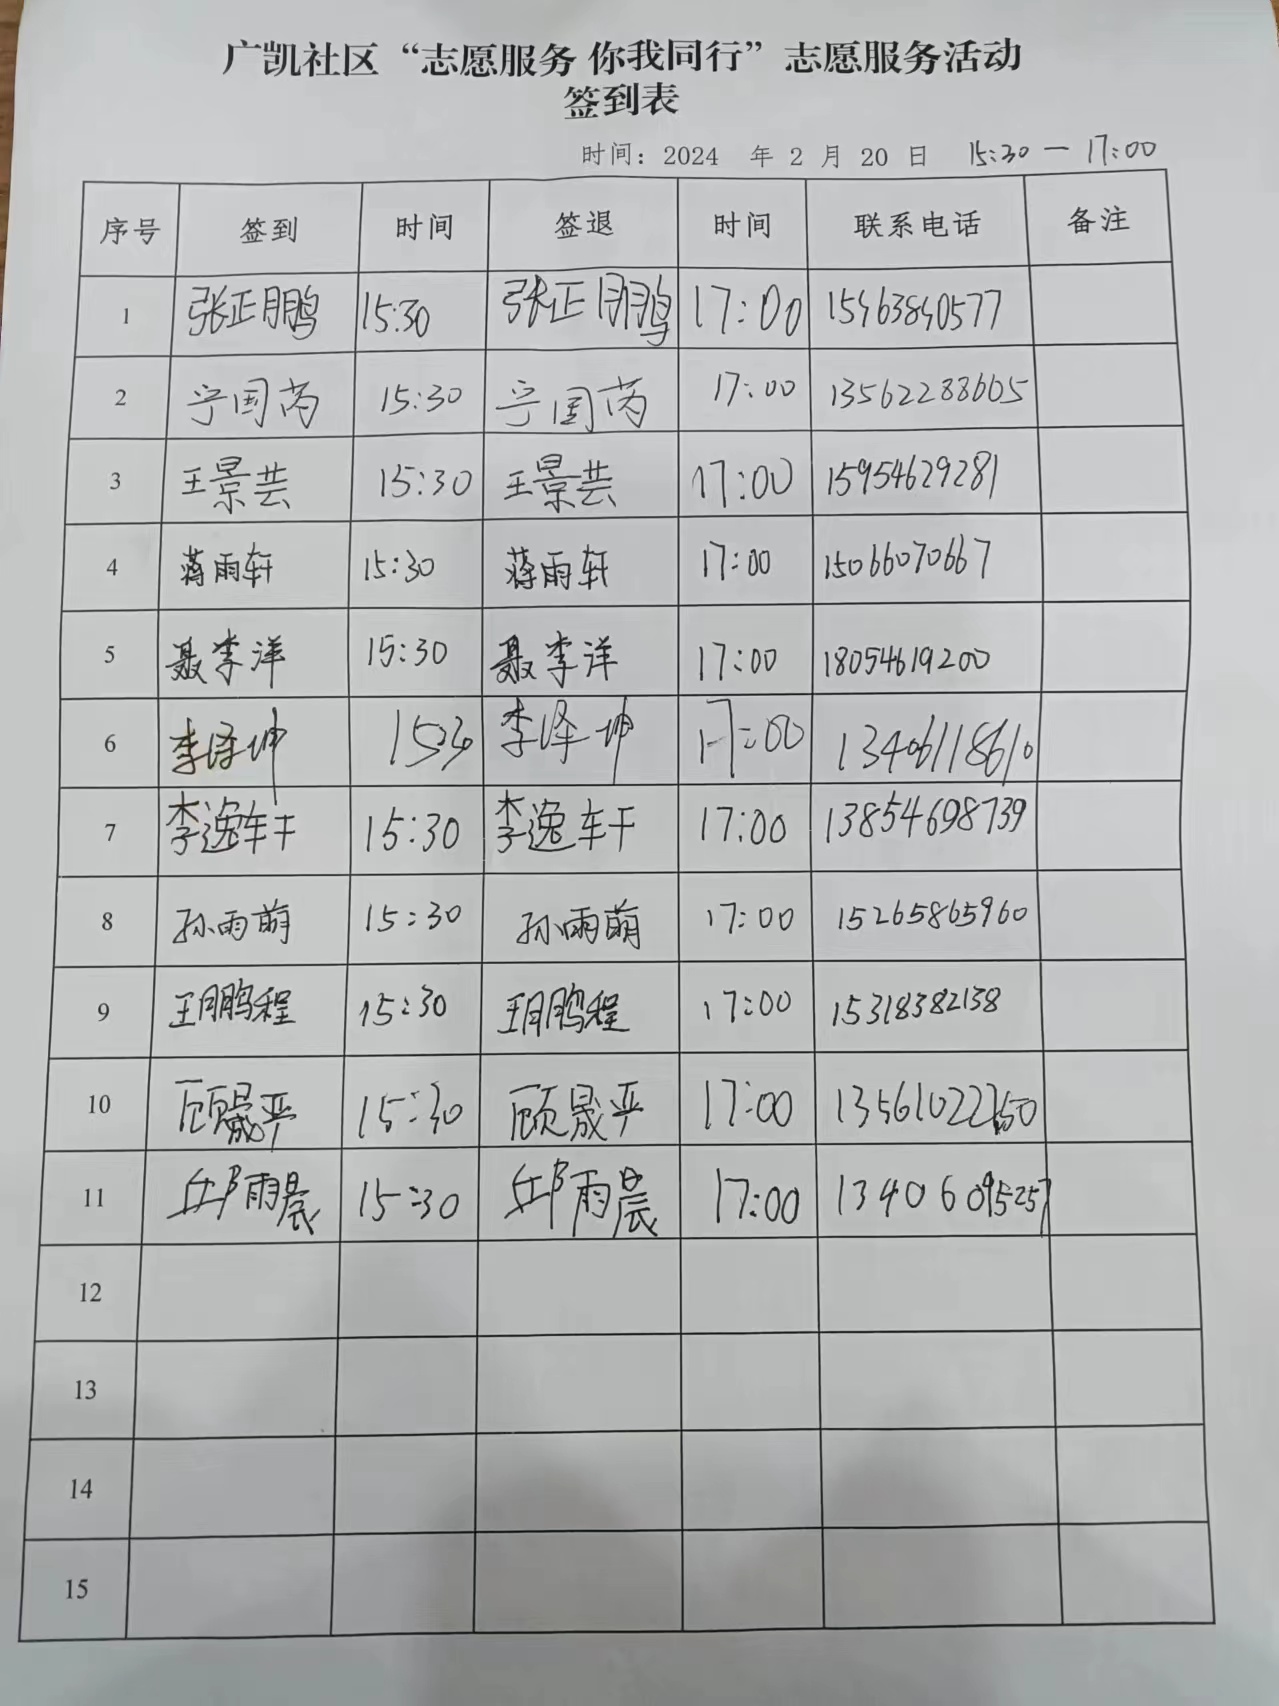 广凯社区“志愿服务 你我同行”志愿服务活动
签到表
时间：2024 年 2 月 20 日 15:30 — 17:00
序号 签到 时间 签退 时间 联系电话 备注
1 张正鹏 15:30 张正鹏 17:00 15963890577
2 宁国芮 15:30 宁国芮 17:00 13562288605
3 王景芸 15:30 王景芸 17:00 15954629281
4 蒋雨轩 15:30 蒋雨轩 17:00 15066070667
5 聂李洋 15:30 聂李洋 17:00 18054619200
6 李泽坤 15:30 李泽坤 17:00 13406118610
7 李逸轩 15:30 李逸轩 17:00 13854698739
8 孙雨萌 15:30 孙雨萌 17:00 15265865960
9 王鹏程 15:30 王鹏程 17:00 15318382138
10 顾晟严 15:30 顾晟严 17:00
11 邱雨晨 15:30 邱雨晨 17:00 13406095257
12
13
14
15